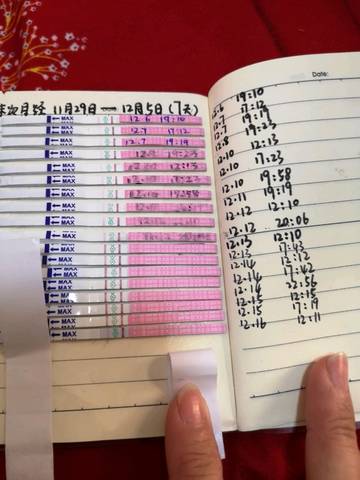 次月经 11月29日 — 12月5日 (7天)
← MAX 12.6 19:10
← MAX 12.7 17:12
← MAX 12.7 19:19
← MAX 19:23
← MAX 12:13
← MAX 17:23
← MAX
← MAX
← MAX
← MAX
← MAX
← MAX
← MAX
← MAX
← MAX
← MAX
← MAX
← MAX
Date:
12.6 19:10
12.7 17:12
12.7 19:19
12.8 19:23
12.10 12:13
12.10 17:23
12.10 19:58
12.11 19:19
12.12 12:10
12.12 20:06
12.13 12:10
12.13 17:43
12.14 12:12
12.14 17:42
12.14 22:56
12.15 12:15
12.15 17:19
12.16 12:11